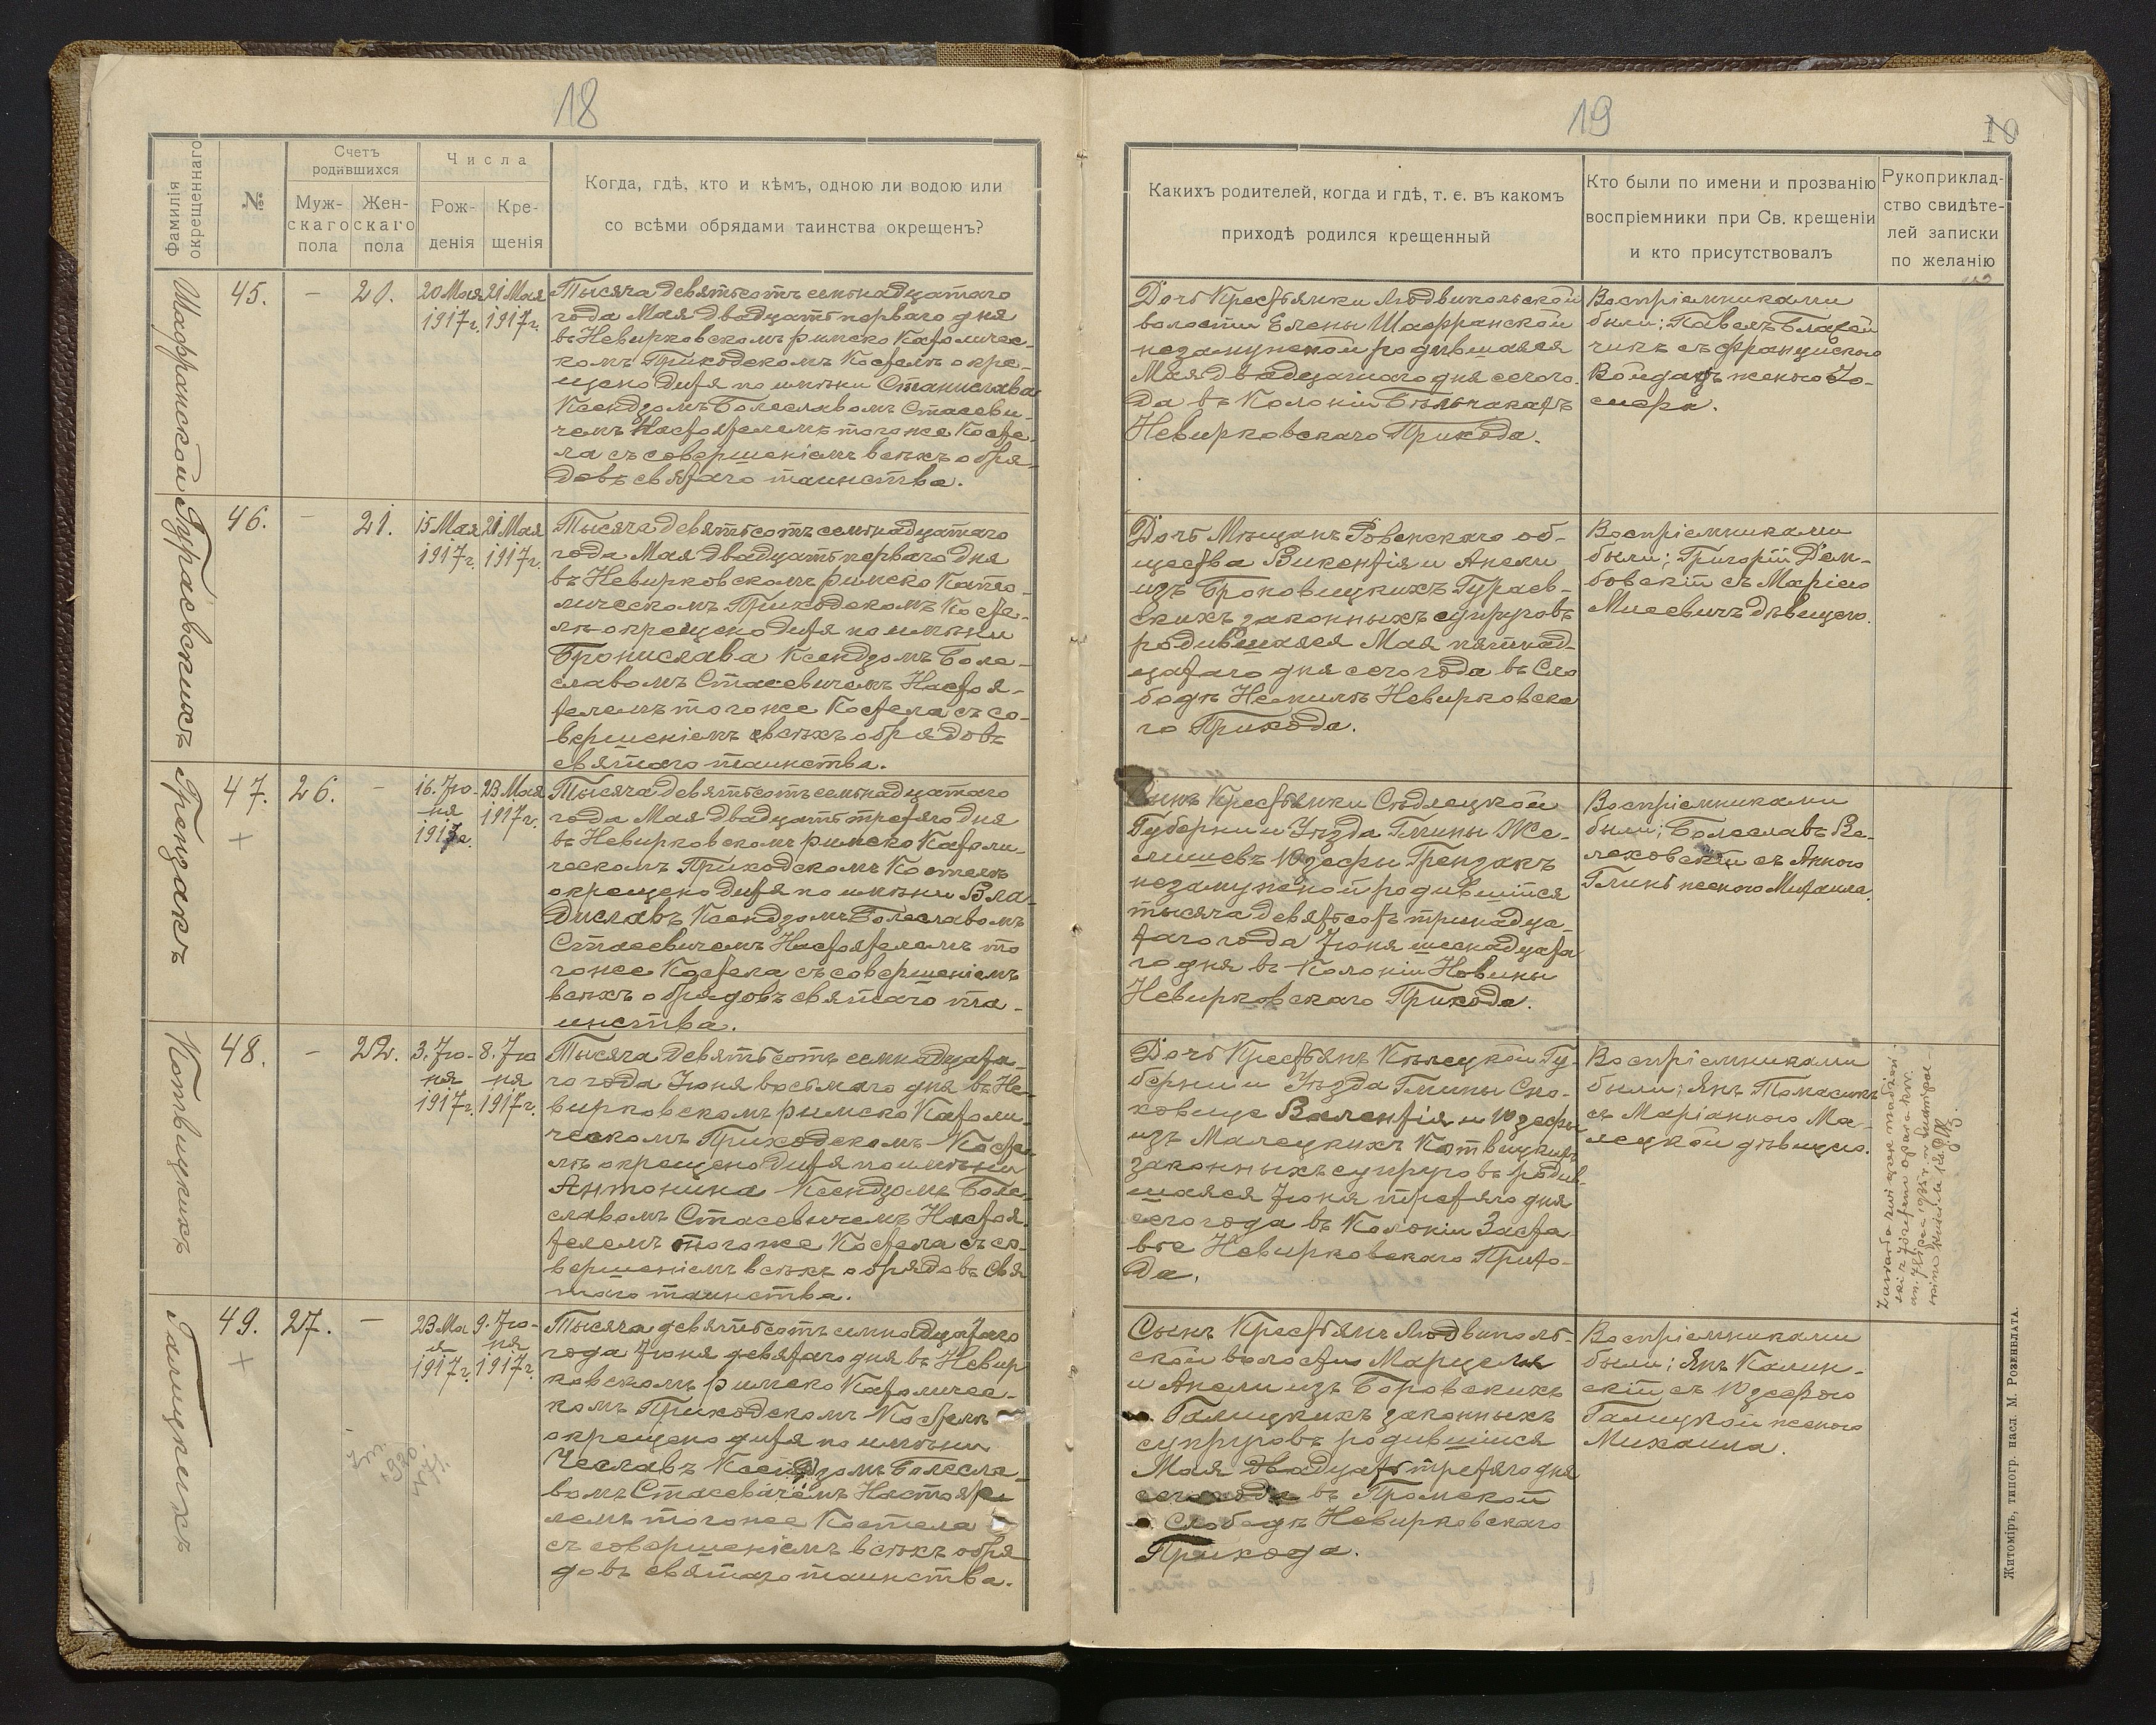 18
Фамилія окрещеннаго
№
Счетъ родившихся
Муж-
скаго
пола
Жен-
скаго
пола
Числа
Рож-
денія
Кре-
щенія
Когда, гдѣ, кто и кѣмъ, одною ли водою или
со всѣми обрядами таинства окрещенъ?
Шафранской
45.
—
20.
20 Мая
1917 г.
21 Мая
1917 г.
Тысяча девятьсотъ семьнадцатаго
года Мая двадцать перваго дня
въ Невирковскомъ римско Католичес-
комъ Приходскомъ Костелѣ окре-
щено дитя по имени Станислава
Ксендзомъ Болеславомъ Стасеви-
чемъ Настоятелемъ тогоже Косте-
ла съ совершеніемъ всѣхъ обря-
довъ святаго таинства.
Гураевскихъ
46.
—
21.
15 Мая
1917 г.
21 Мая
1917 г.
Тысяча девятьсотъ семьнадцатаго
года Мая двадцать перваго дня
въ Невирковскомъ римско Като-
лическомъ Приходскомъ Косте-
лѣ окрещено дитя по имени
Бронислава Ксендзомъ Боле-
славомъ Стасевичемъ Настоя-
телемъ тогоже Костела съ со-
вершеніемъ всѣхъ обрядовъ
святаго таинства.
Грензакъ
47.
+
26.
—
16. Ію-
ня
1913 г.
23 Мая
1917 г.
Тысяча девятьсотъ семьнадцатаго
года Мая двадцать третяго дня
въ Невирковскомъ римско Католи-
ческомъ Приходскомъ Костелѣ
окрещено дитя по имени Вла-
диславъ Ксендзомъ Болеславомъ
Стасевичемъ Настоятелемъ то
гоже Костела съ совершеніемъ
всѣхъ обрядовъ святаго та-
инства.
Котвицкихъ
48.
—
22.
3. Ію-
ня
1917 г.
8. Ію
ня
1917 г.
Тысяча девятьсотъ семнадцата-
го года Іюня восьмаго дня въ Не-
вирковскомъ римско Католи-
ческомъ Приходскомъ Косте-
лѣ окрещено дитя по имени
Антонина Ксендзомъ Боле-
славомъ Стасевичемъ Настоя-
телемъ тогоже Костела съ со-
вершеніемъ всѣхъ обрядовъ свя
таго таинства.
Галицкихъ
49.
+
27.
—
23 Ма
я
1917 г.
9. Ію-
ня
1917 г.
Тысяча девятьсотъ семнадцатаго
года Іюня девятаго дня въ Невир
ковскомъ римско Католичес-
комъ Приходскомъ Костелѣ
окрещено дитя по имени
Чеславъ Ксендзомъ Болесла-
вомъ Стасевичемъ Настояте
лемъ тогоже Костела
съ совершеніемъ всѣхъ обря
довъ святаго таинства.
19
Какихъ родителей, когда и гдѣ, т. е. въ какомъ
приходѣ родился крещенный
Кто были по имени и прозванію
воспріемники при Св. крещеніи
и кто присутствовалъ
Рукоприклад-
ство свидѣте-
лей записки
по желанію
Дочь Крестьянки Людвипольской
волости Елены Шафранской
незамужней родившаяся
Мая двадцатаго дня сего го-
да въ Колоніи Бѣльчакахъ
Невирковскаго Прихода.
Воспріемниками
были: Павелъ
чикъ съ Францишкою
женою Іо-
сифа.
Дочь Мѣщанъ Ровенскаго об-
щества Викентія и Анели
изъ Броковицкихъ Гураев-
скихъ законныхъ супруговъ
родившаяся Мая пятнад-
цатаго дня сего года въ Сло
бодѣ Немилѣ Невирковска
го Прихода.
Воспріемниками
были; Григорій Дем-
бовскій съ Маріею
Мисевичъ дѣвицею.
Сынъ Крестьянки Сѣдлецкой
Губерніи Уѣзда Гмины Же-
лишевъ Юзефы Грензакъ
незамужней родившійся
тысяча девятьсотъ тринадца-
таго года Іюня шеснадцата
го дня въ Колоніи Новины
Невирковскаго Прихода.
Воспріемниками
были; Болеславъ Ве-
леховскій съ Анною
Глинь женою Михаила.
Дочь Крестьянъ Кѣлецкой Гу-
берніи Уѣзда Гмины Сно-
ховице Валентія и Юзефы
изъ Малецкихъ Котвицкихъ
законныхъ супруговъ родив-
шаяся Іюня третяго дня
сего года въ Колоніи Заста-
вье Невирковскаго Прихо-
да.
Воспріемниками
были; Янъ Томасикъ
съ Маріанною Ма-
лецкой дѣвицею.
Сынъ Крестьянъ Людвиполь-
ской волости Марцелія
и Анели изъ Боровскихъ
Галицкихъ законныхъ
супруговъ родившійся
Мая двадцать третяго дня
сего года въ Громской
Слободѣ Невирковскаго
Прихода.
Воспріемниками
были; Янъ Калин-
скій съ Юзефою
Галицкой женою
Михаила.
Житоміръ, типогр. насл. М. Розенблата.